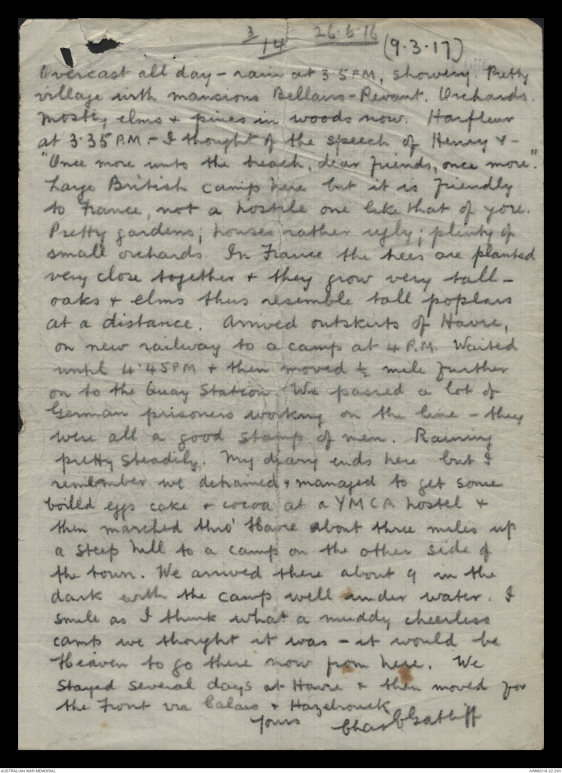 3/14 26.6.16 (9.3.17)
Overcast all day - rain at 3.5PM, showery. Pretty
village with mansions Bellairs - . Orchards.
Mostly elms & pines in woods now. Harfleur
at 3.35 P.M. - I thought of the speech of Henry V -
"Once more unto the breach, dear friends, once more."
Large British camp here but it is friendly
to France, not a hostile one like that of yore.
Pretty gardens; houses rather ugly; plenty of
small orchards. In France the trees are planted
very close together & they grow very tall -
oaks & elms thus resemble tall poplars
at a distance. Arrived outskirts of Havre,
on new railway to a camp at 4 P.M. Waited
until 4.45PM & then moved ½ mile further
on to the Quay Station. We passed a lot of
German prisoners working on the line - they
were all a good stamp of men. Raining
pretty steadily. My diary ends here but I
remember we detrained & managed to get some
boilld eggs cake & cocoa at a YMCA hostel &
then marched thro' Havre about three miles up
a steep hill to a camp on the other side of
the town. We arrived there about 9 in the
dark with the camp well under water. I
smile as I think what a muddy cheerless
camp we thought it was - it would be
Heaven to go there now from here. We
stayed several days at Havre & then moved for
the Front via Calais & Hazebrouck
Yours Chas C Gatliff
AUSTRALIAN WAR MEMORIAL